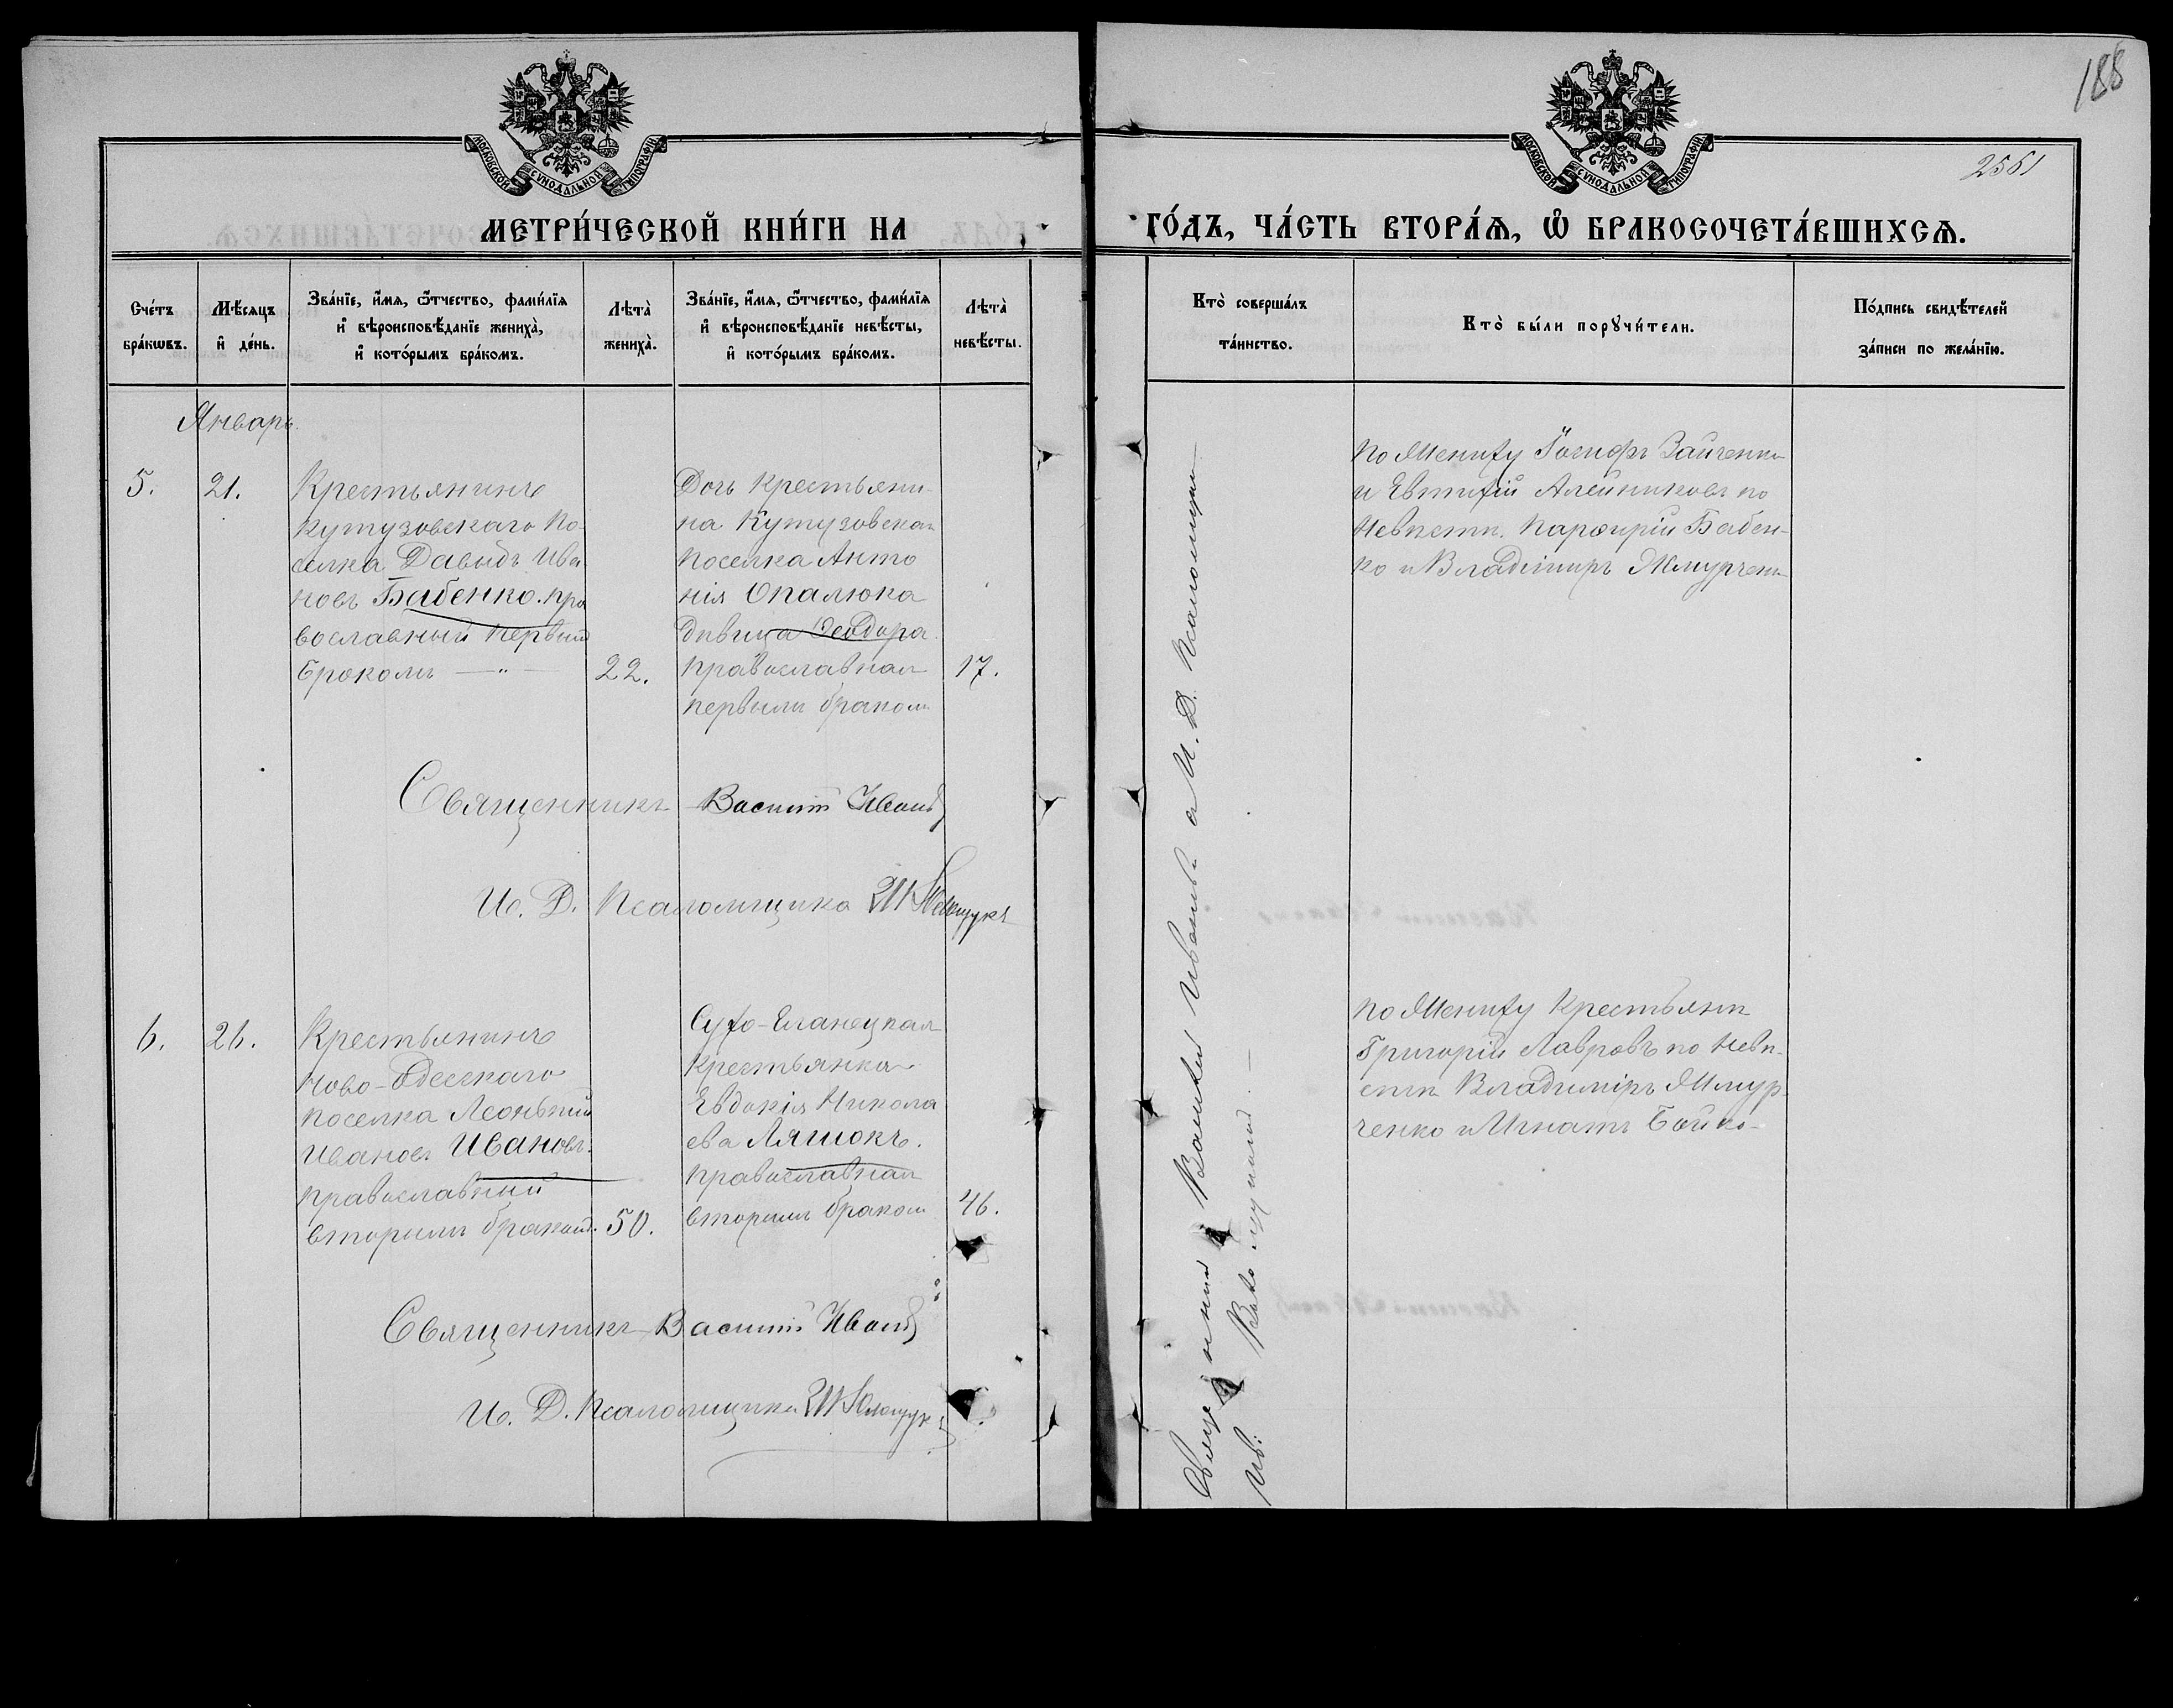 188
2561
МОСКОВСКОЙ СѴНОДАЛЬНОЙ ТИПОГРАФІИ
МОСКОВСКОЙ СѴНОДАЛЬНОЙ ТИПОГРАФІИ
МЕТРИ́ЧЕСКОЙ КНИ́ГИ НА
ГО́ДЪ, ЧА́СТЬ ВТОРА́Ѧ, Ѽ БРАКОСОЧЕТА́ВШИХСѦ.
Сче́тъ бра́кѡвъ.
Мѣ́сяцъ и҆ де́нь.
Зва́нїе, и҆́мя, ѻ҆́тчество, фами́лїя
и҆ вѣроисповѣ́данїе жениха̀,
и҆ кото́рымъ бра́комъ.
Лѣта̀ жениха̀.
Зва́нїе, и҆́мя, ѻ҆́тчество, фами́лїя
и҆ вѣроисповѣ́данїе невѣ́сты,
и҆ кото́рымъ бра́комъ.
Лѣта̀ невѣ́сты.
Кто̀ соверша́лъ
та́инство.
Кто̀ бы́ли порꙋчи́тели.
По́дпись свидѣ́телей
за́писи по жела́нїю.
Январь.
5.
21.
Крестьянинъ
Кутузовскаго по
селка Давыдъ Ива
новъ Бабенко. пра
вославный первым
бракомъ — „ —
22.
Дочь крестьяни-
на Кутузовскаго
поселка Анто
нія Опалюка
девица Феодора
православная
первымъ бракомъ
17.
По жениху Іосифъ Зайченко
и Евтихій Алейниковъ по
невѣстѣ. Парфирій Бабен-
ко и Владіміръ Жмурченко
Священникъ Василій Ивановъ
И. Д. Псаломщика
6.
26.
Крестьянинъ
Ново-Одесскаго
поселка Леонтий
Ивановъ Ивановъ.
православный
вторымъ бракомъ.
50.
Сухо-Еланецкая
крестьянка
Евдокія Никола
ева Ляшокъ.
православная
вторымъ бракомъ
46.
По жениху крестьянинъ
Григорій Лавровъ по невѣ-
стѣ Владиміръ Жмур-
ченко и Игнатъ Бойко
Священникъ Василій Ивановъ
И. Д. Псаломщика
Священникъ Василій Ивановъ и И. Д. Псаломщика